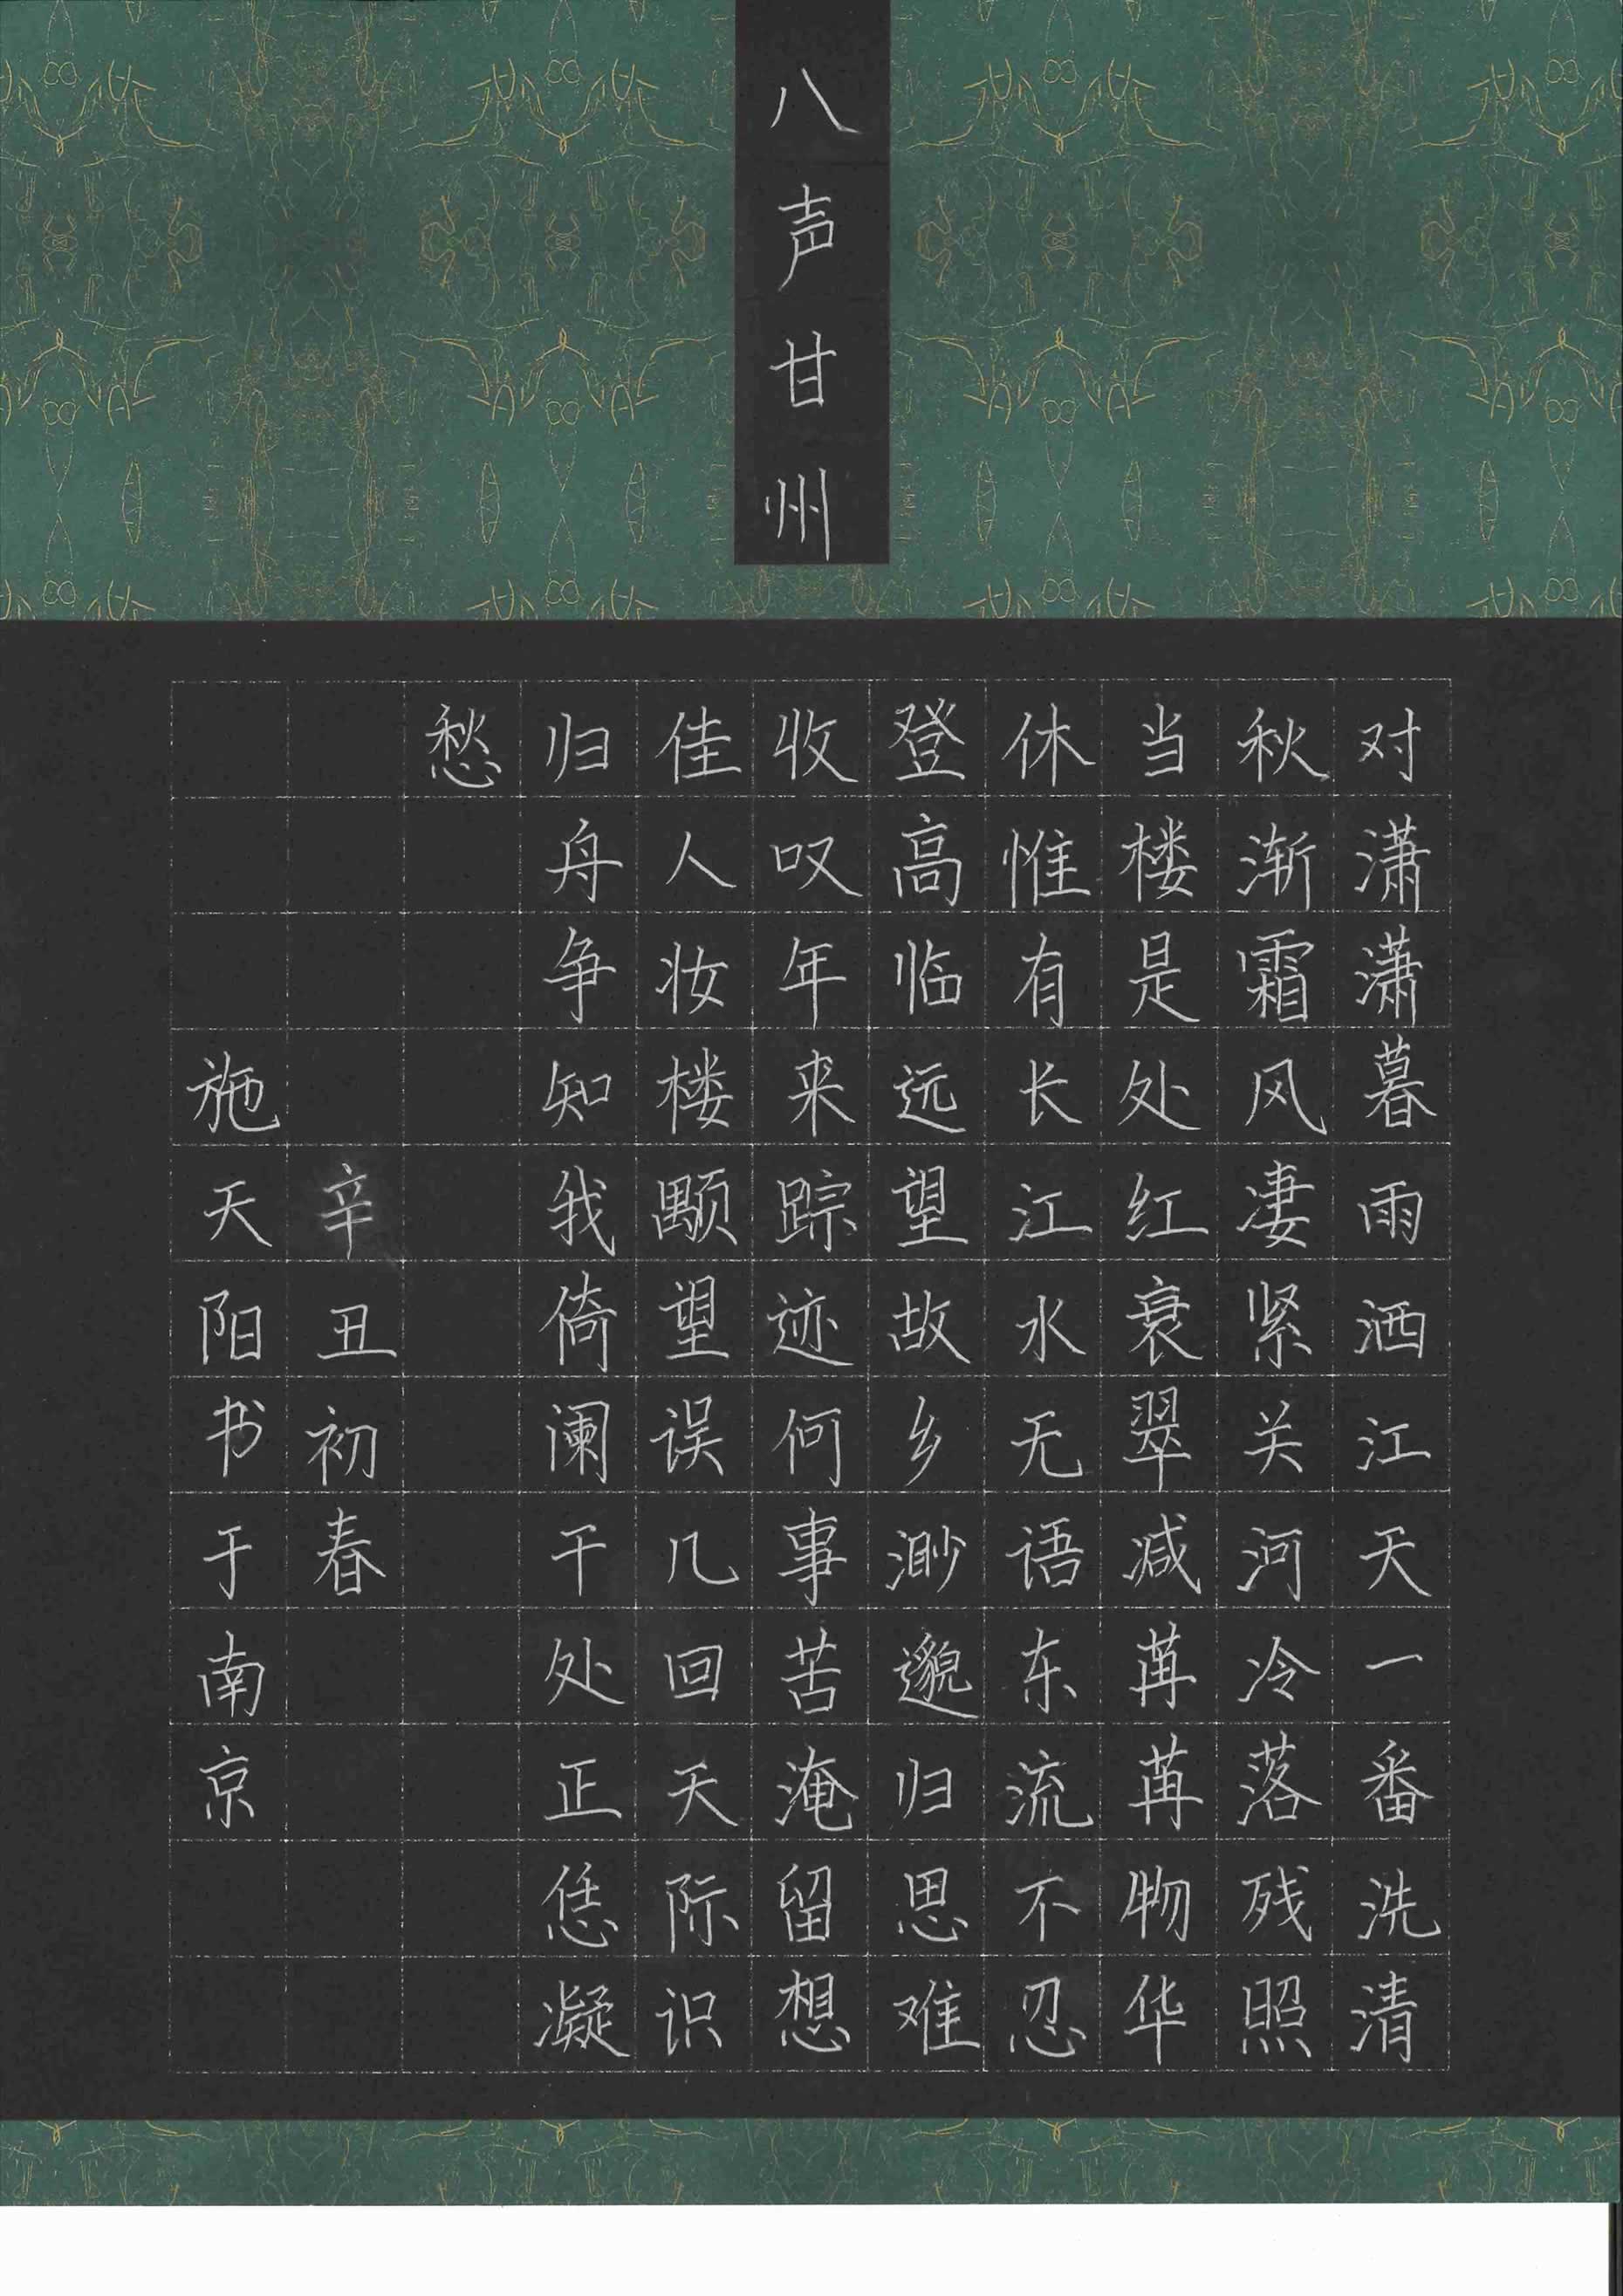 八声甘州
对潇潇暮雨洒江天一番洗清
秋渐霜风凄紧关河冷落残照
当楼是处红衰翠减苒苒物华
休惟有长江水无语东流不忍
登高临远望故乡渺邈归思难
收叹年来踪迹何事苦淹留想
佳人妆楼颙望误几回天际识
归舟争知我倚阑干处正恁凝
愁
辛丑初春
施天阳书于南京